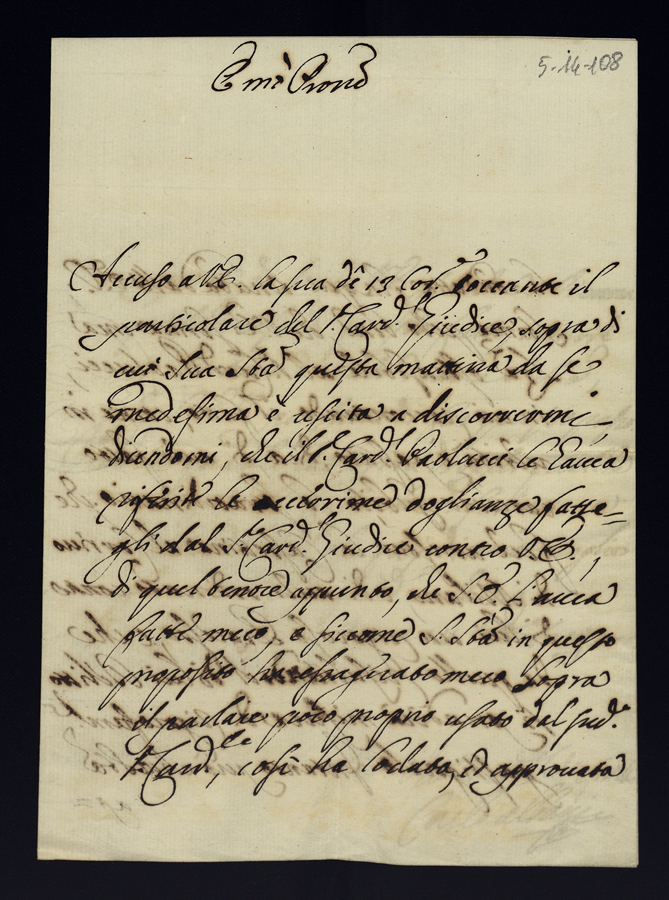 5-14-108
Em.o Prone
Accuso a V.E. la sua de 13 Cor.te toccante il
particolare del S.r Card.l Giudice, sopra di
cui Sua Sta questa mattina da se
medesima è uscita a discorrermi
dicendomi, che il S.r Card.l Paolucci le havea
riferite le acerrime doglianze fatte=
gli dal S.r Card.l Giudice contro V.E.,
di quel tenore appunto, che S.E. havea
fatte meco, e siccome S. Sta in questo
proposito ha esagerato meco sopra
il parlare poco proprio usato dal sud.o
S.r Card.le, così ha lodata, ed approvata